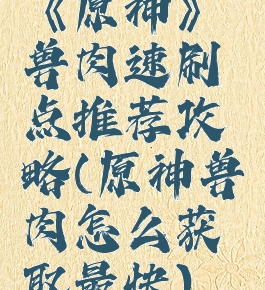 《原神》
兽肉速刷
点推荐攻
略(原神兽
肉怎么获
取最快)